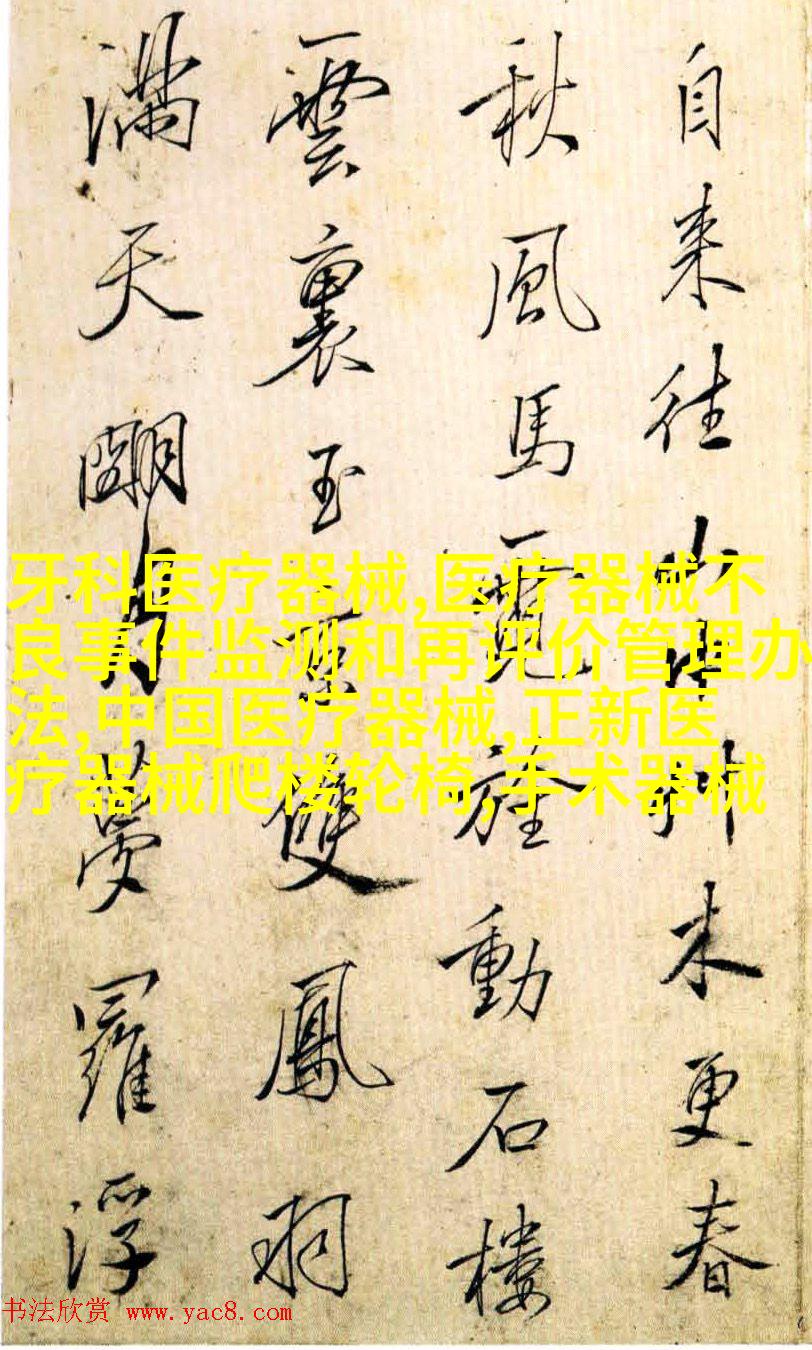 自来往山中艸木更春
秋風馬霓旌動石樓
雲裏玉雙鳳羽
滿天月夢羅浮
牙科医疗器械,医疗器械不
良事件监测和再评价管理办
法,中国医疗器械,正新医
疗器械爬楼轮椅,手术器械
书法欣赏 www.yac8.com